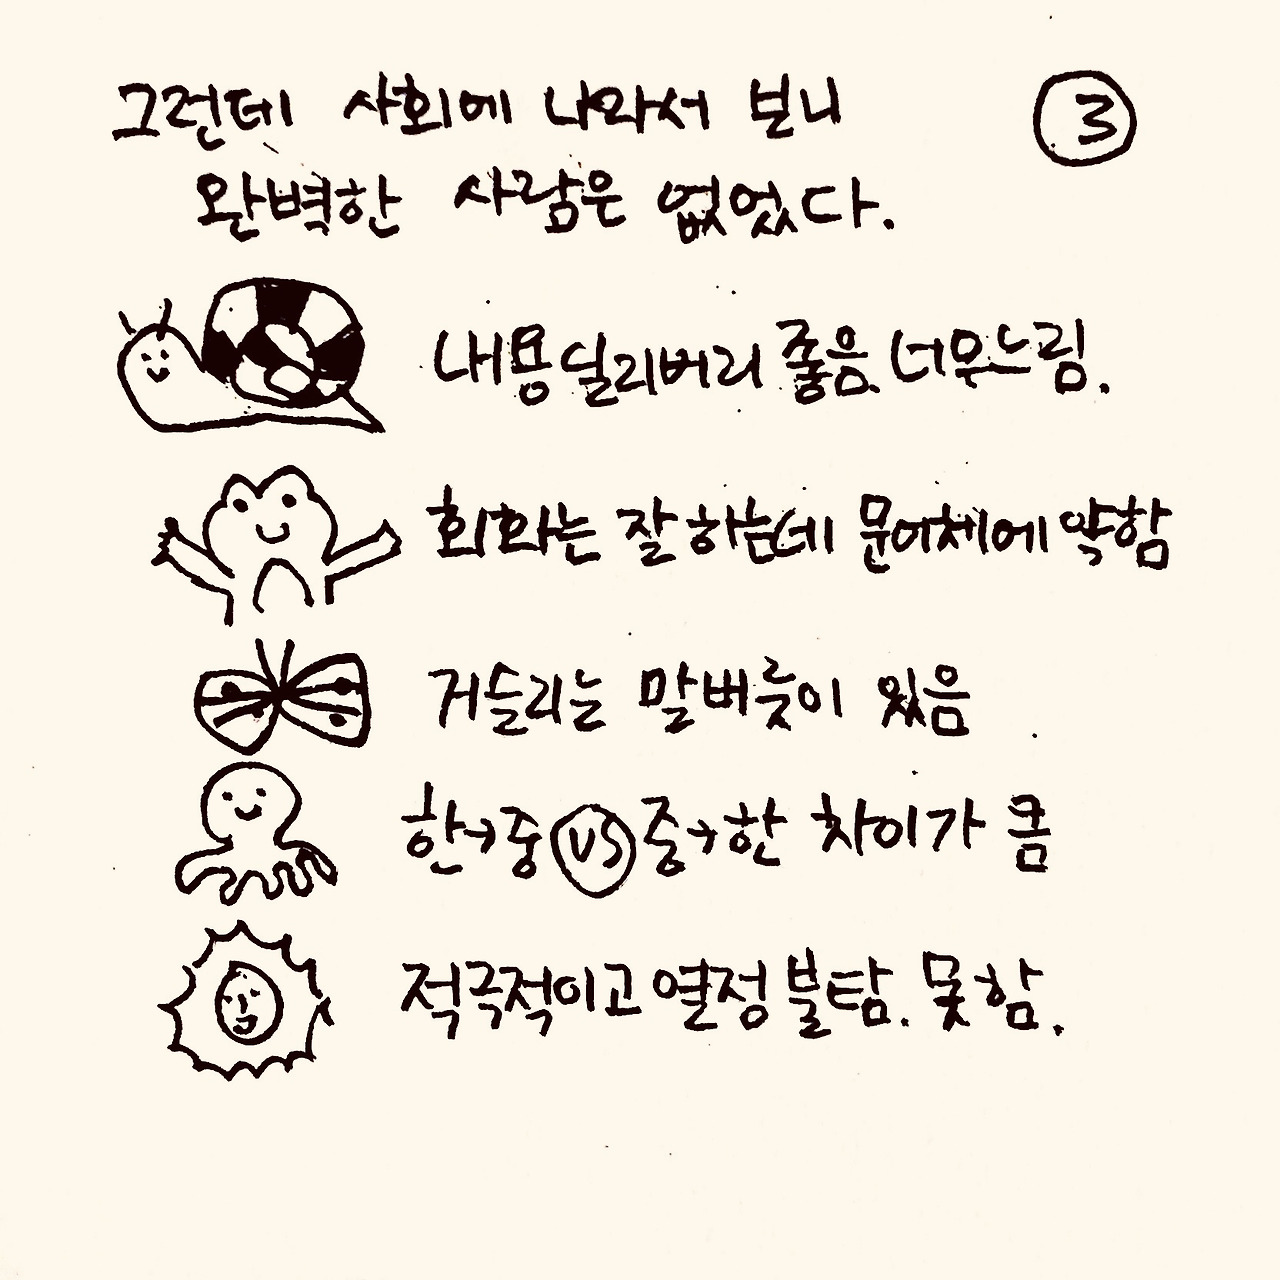 그런데 사회에 나와서 보니
③
완벽한 사람은 없었다.
내용 딜리버리 좋음. 너무 느림.
회화는 잘 하는데 문어체에 약함
거슬리는 말버릇이 있음
한→중 VS 중→한 차이가 큼
적극적이고 열정 불탐. 못 함.